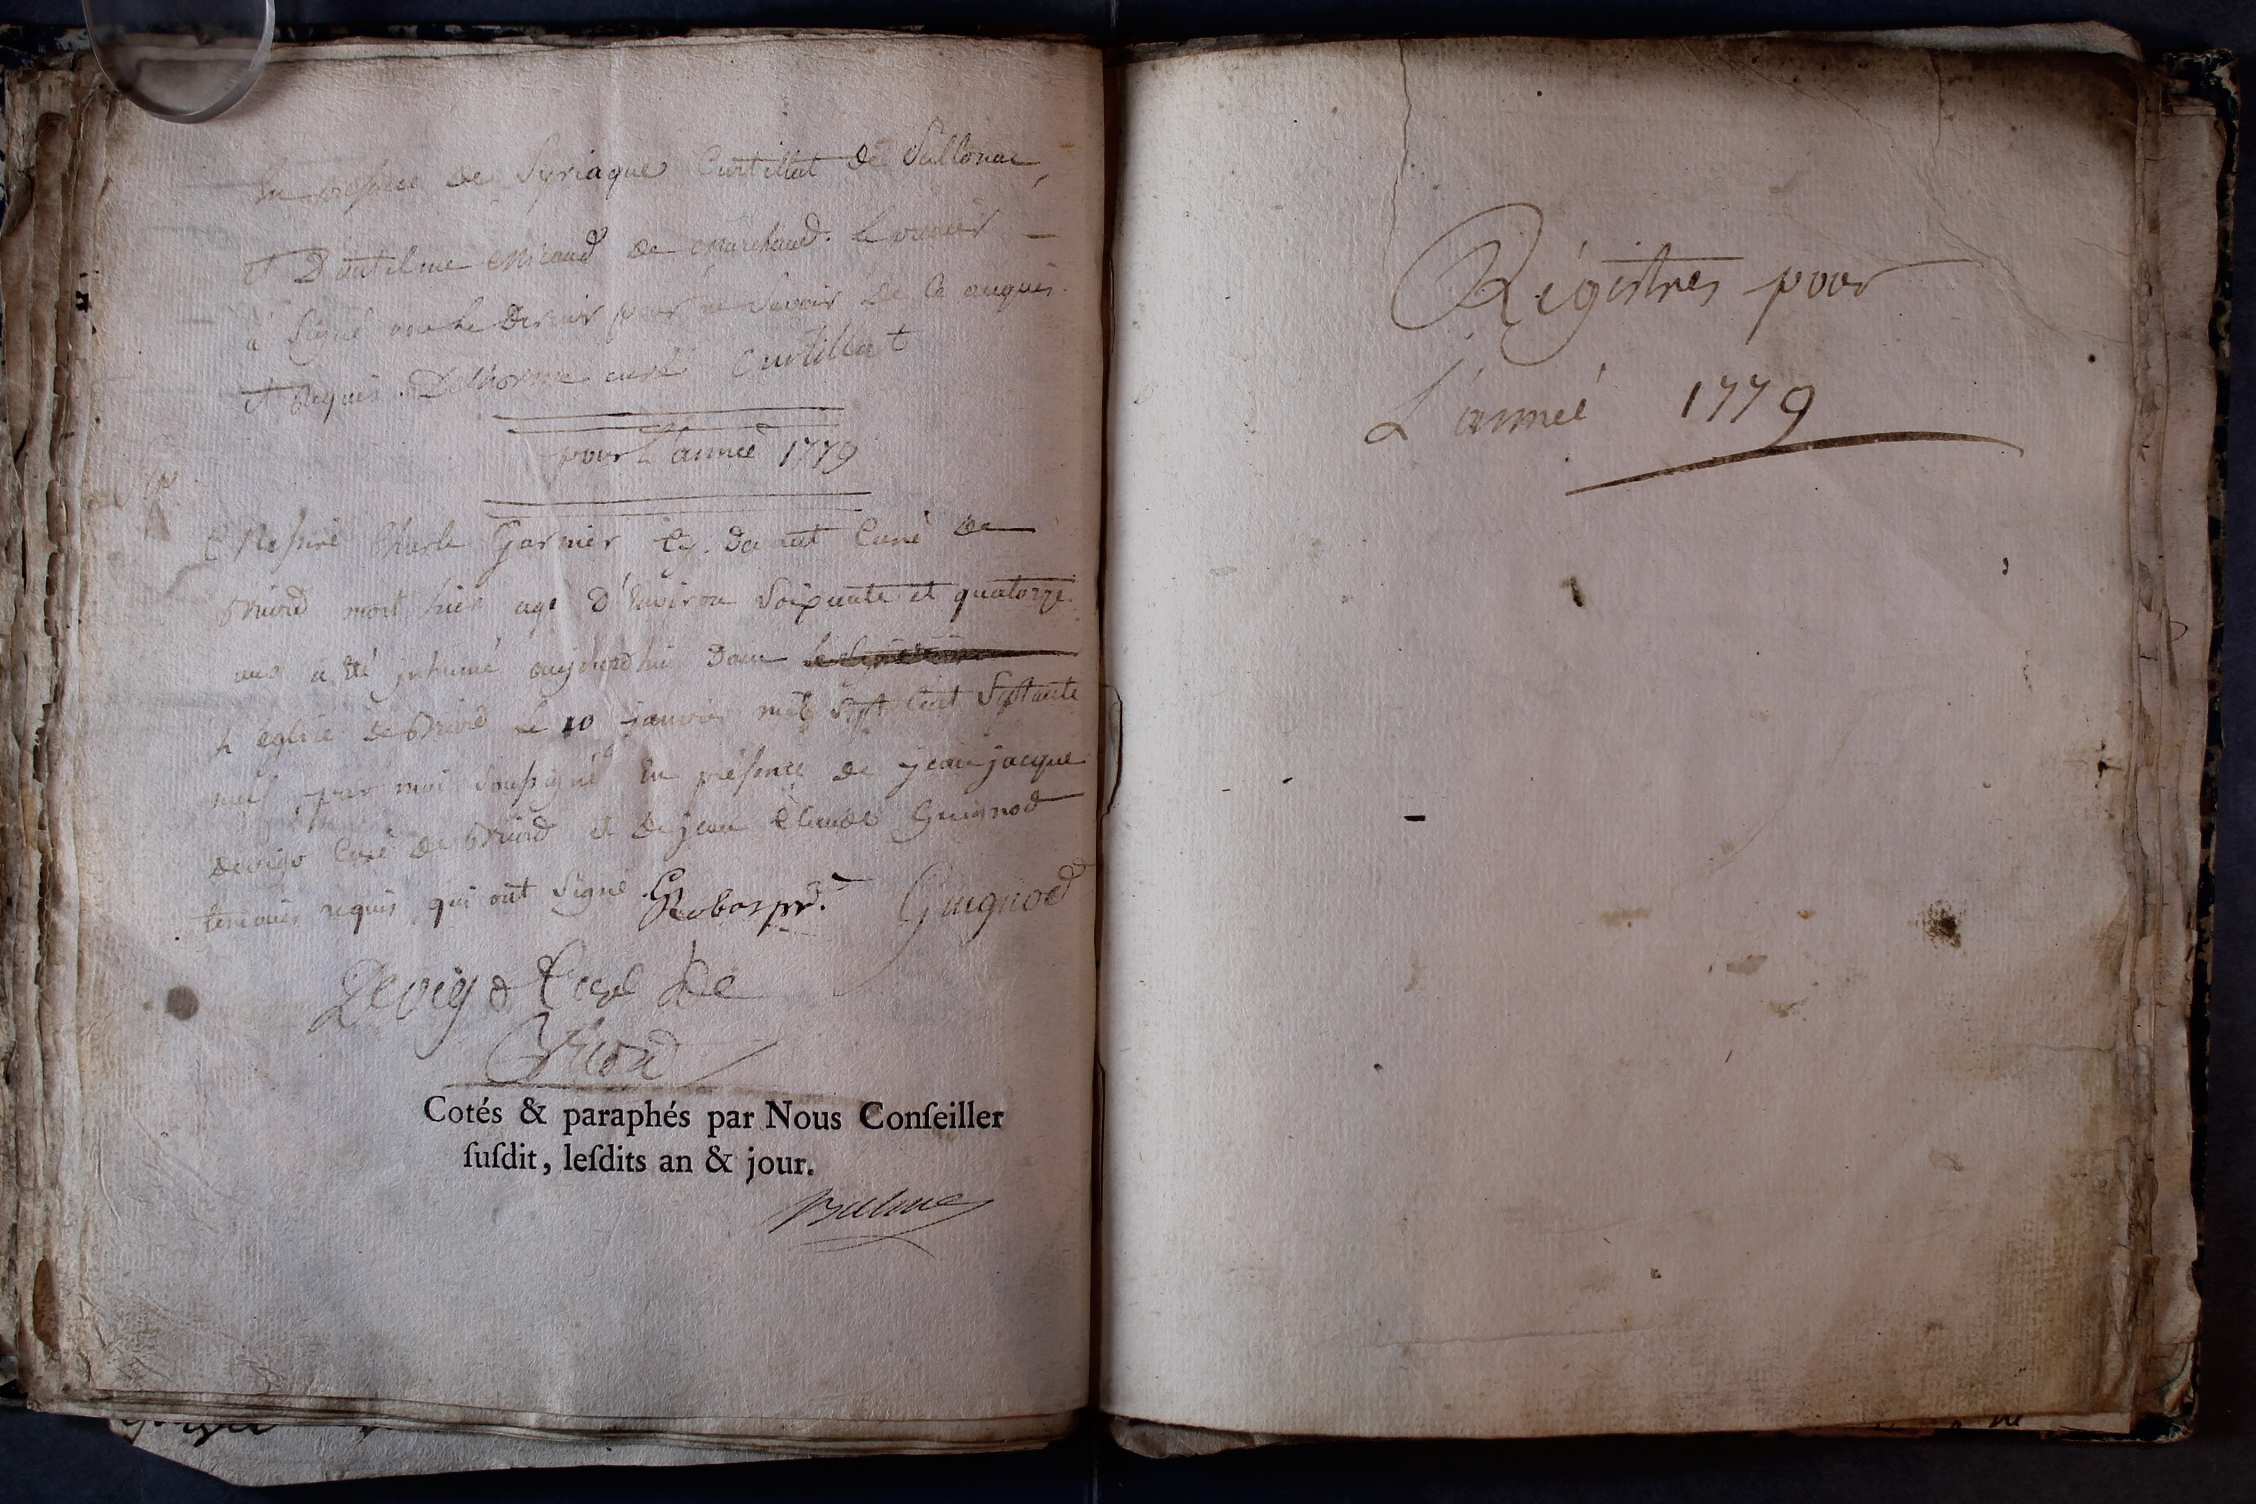 En présence de Syriaque Curtillat de Sallonae
et D'antelme Micaud de Marchand. le premier
a signé non le dernier pour ne savoir de ce enquis
et Requis. Delhorme curé Curtillat
pour L'année 1779
Messire Charle Garnier cy. devant Curé de
Briord mort hier agé d'Environ Soixante et quatorze
ans a été inhumé aujourd'hui dans
L'église de Briord le 10 janvier mil Sept Cent Septante
neuf par moi soussigné En présence de jean jacque
devigo Curé de Briord et de jean Claude Guignod
temoins requis qui ont signé. Guignod
Devigo Curé de
Briord
Cotés & paraphés par Nous Conſeiller
ſuſdit, leſdits an & jour.
Régistres pour
L'année 1779